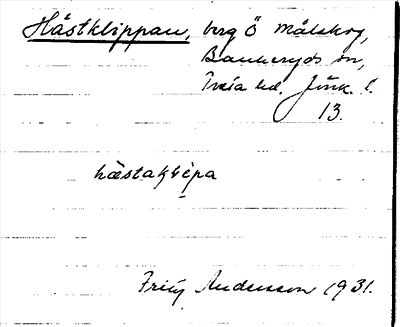 Hästklippan, berg Ö Målskog,
Bankeryds sn,
Tveta hd. Jönk. l.
13.
hästakḷépa
Fritz Andersson 1931.